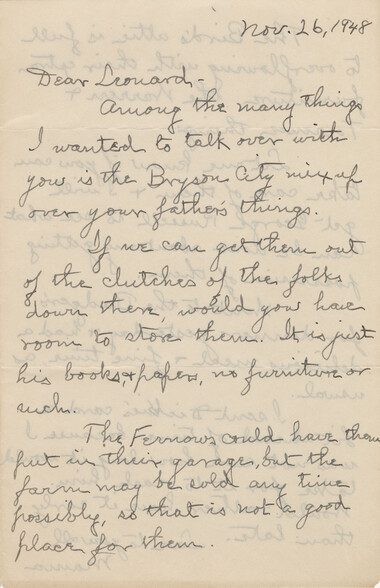 Nov. 26, 1948
Dear Leonard -
Among the many things
I wanted to talk over with
you is the Bryson City mix up
over your father's things.
If we can get them out
of the clutches of the folks
down there, would you have
room to store them. It is just
his books & papers, no furniture or
such.
The Fernows could have them
put in their garage, but the
farm may be sold any time
possibly, so that is not a good
place for them.